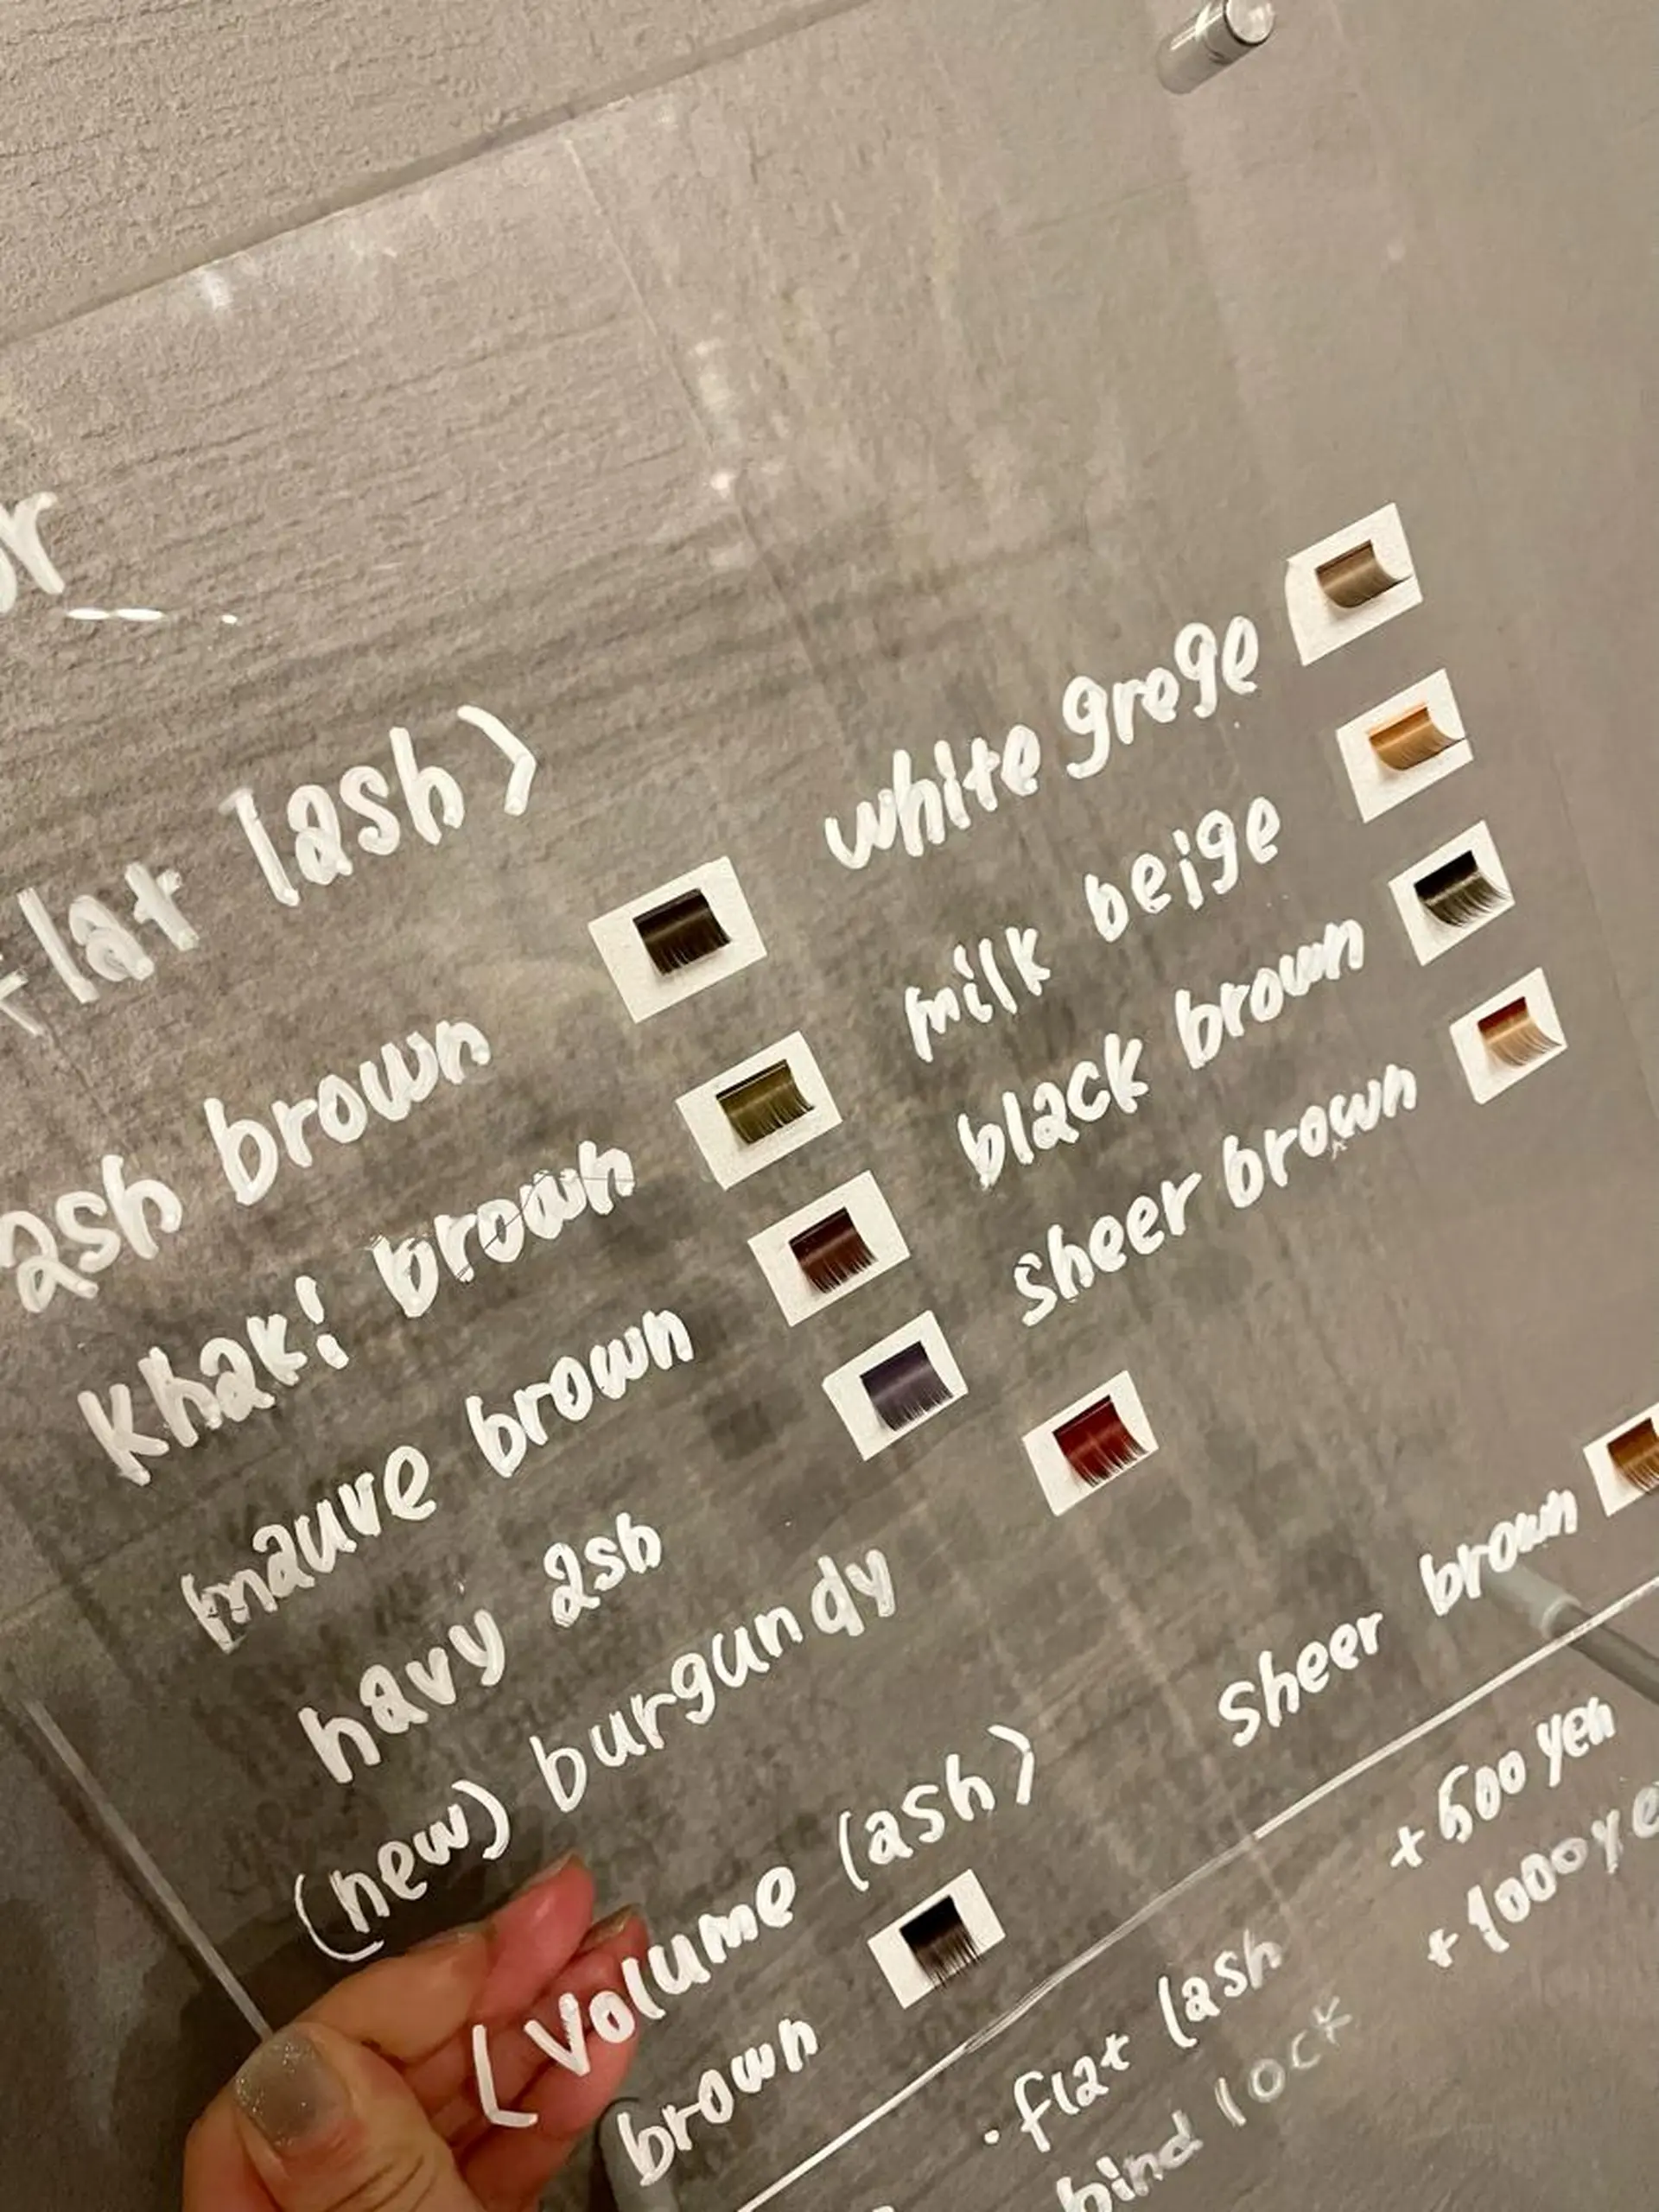 or
flat lash〉
ash brown
khaki brown
mauve brown
navy ash
(new) burgundy
white grege
milk beige
black brown
sheer brown
〈volume lash〉
brown
sheer brown
・flat lash +500 yen
bind lock +1000 ye